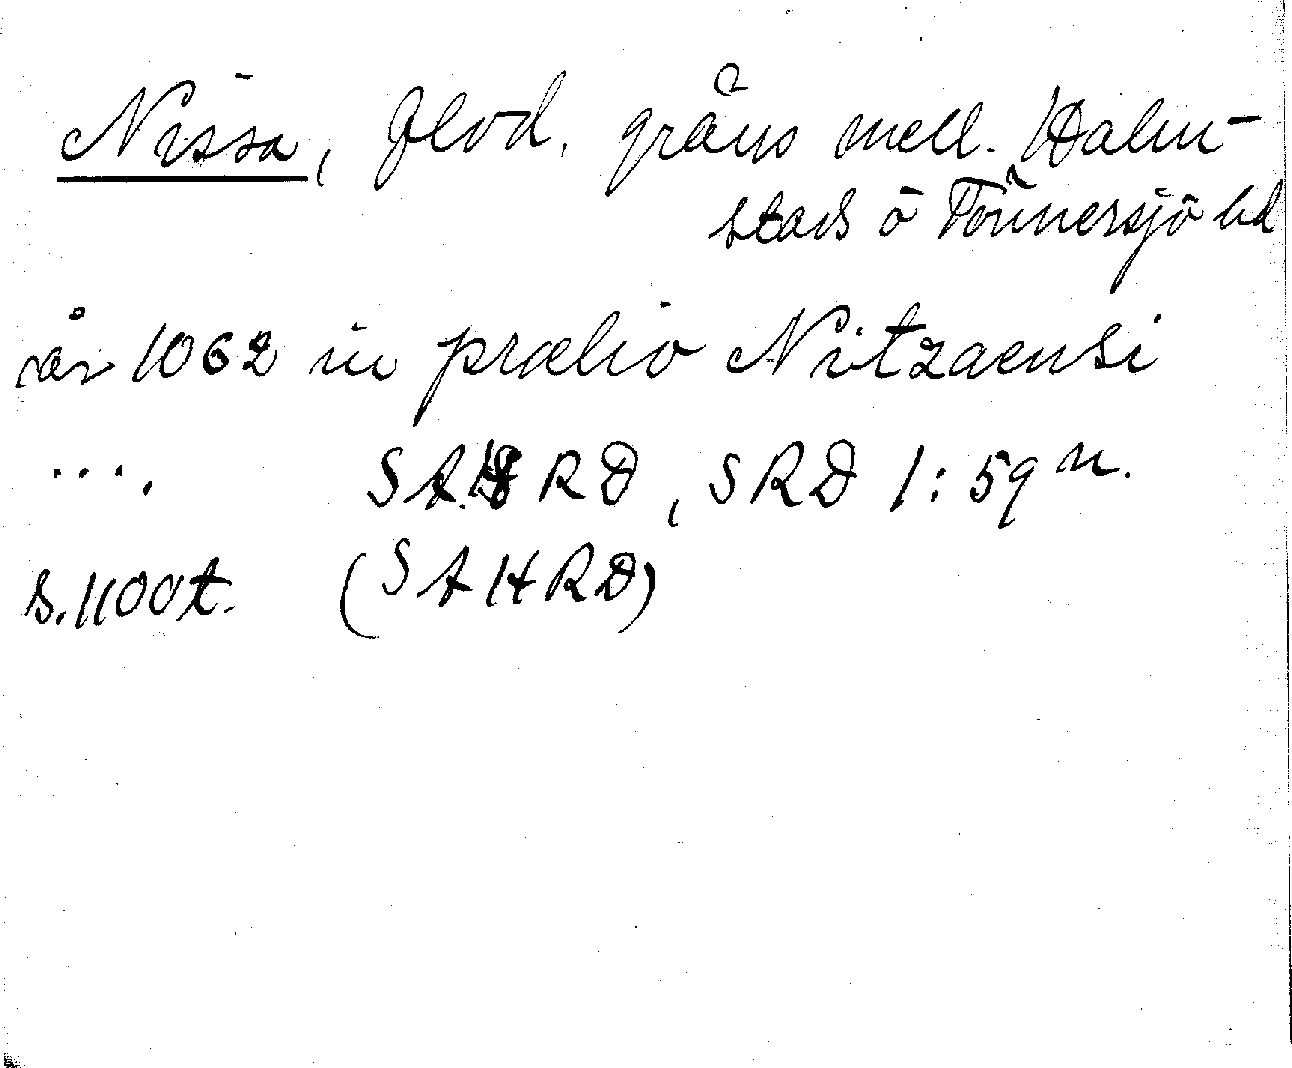 Nissa, flod, gräns mell. Halm-
stads o Tönnersjö hd
år 1062 in prælio Nitzaensi
.... SAHRD, SRD 1:59 n.
s.1100t. (SAHRD)